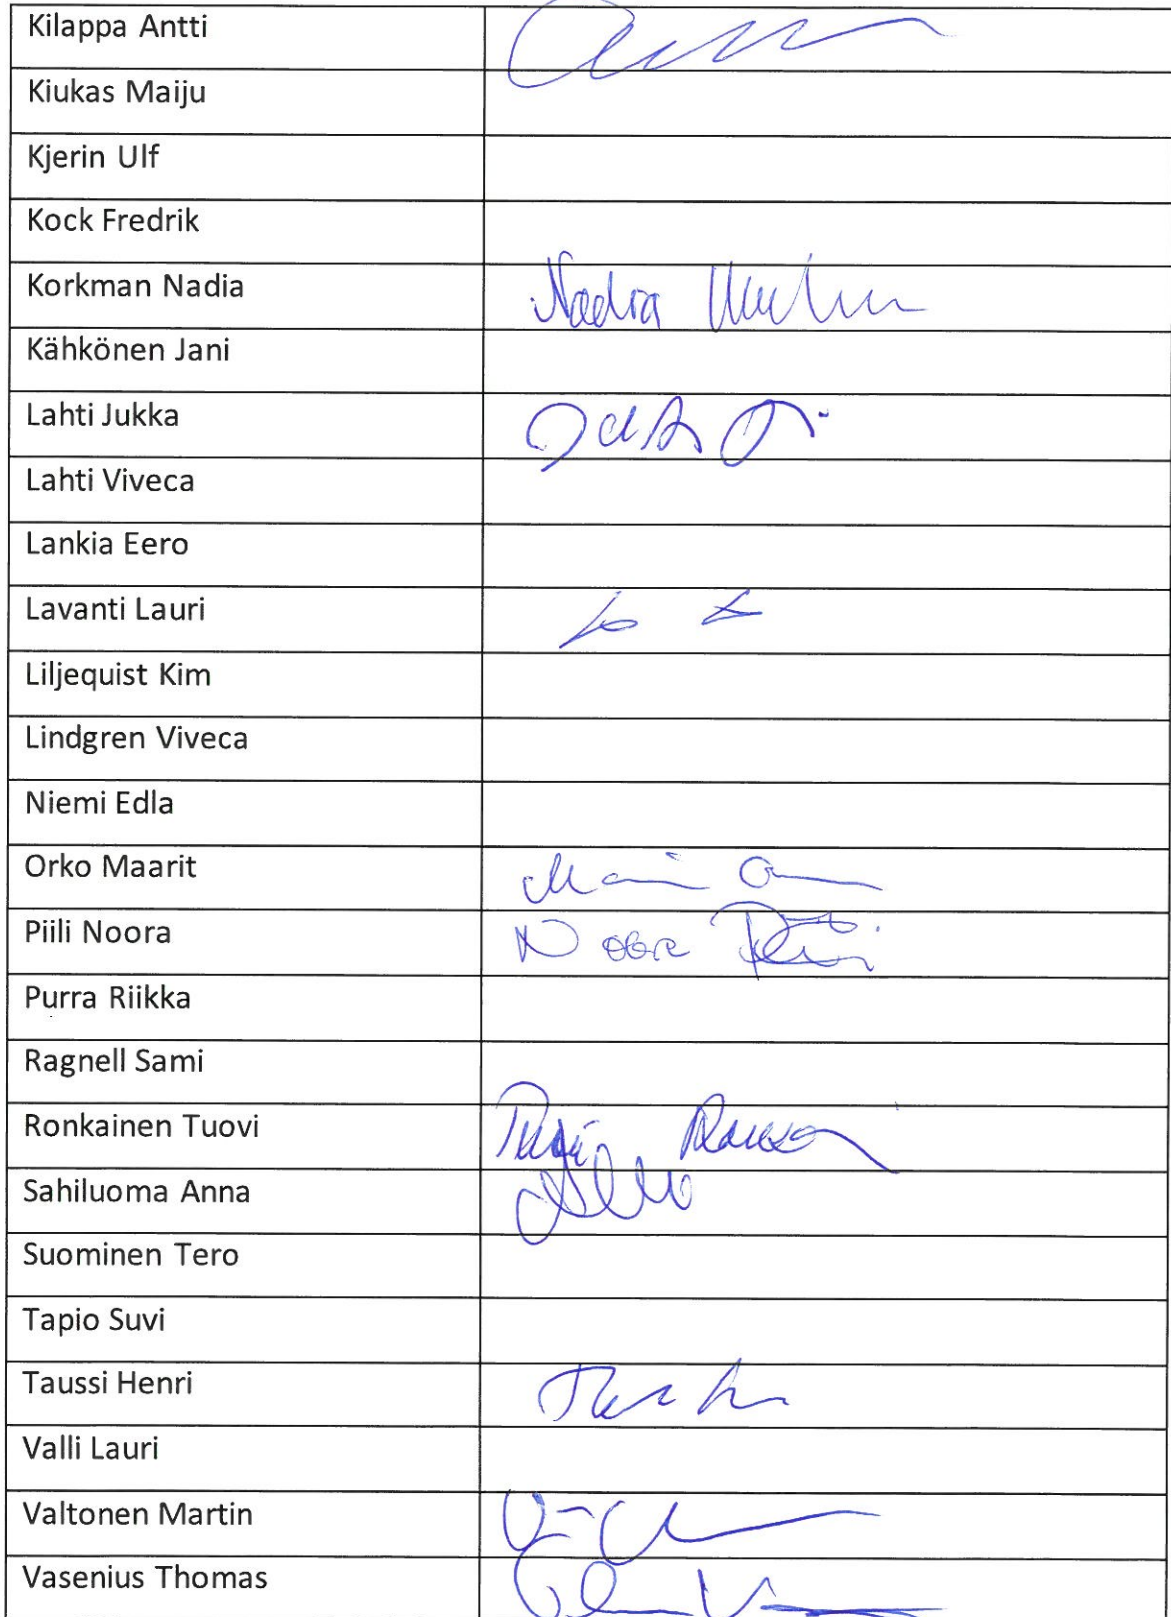 Kilappa Antti
Kiukas Maiju
Kjerin Ulf
Kock Fredrik
Korkman Nadia Nadia
Kähkönen Jani
Lahti Jukka
Lahti Viveca
Lankia Eero
Lavanti Lauri
Liljequist Kim
Lindgren Viveca
Niemi Edla
Orko Maarit
Piili Noora Noora Piili
Purra Riikka
Ragnell Sami
Ronkainen Tuovi
Sahiluoma Anna
Suominen Tero
Tapio Suvi
Taussi Henri
Valli Lauri
Valtonen Martin
Vasenius Thomas